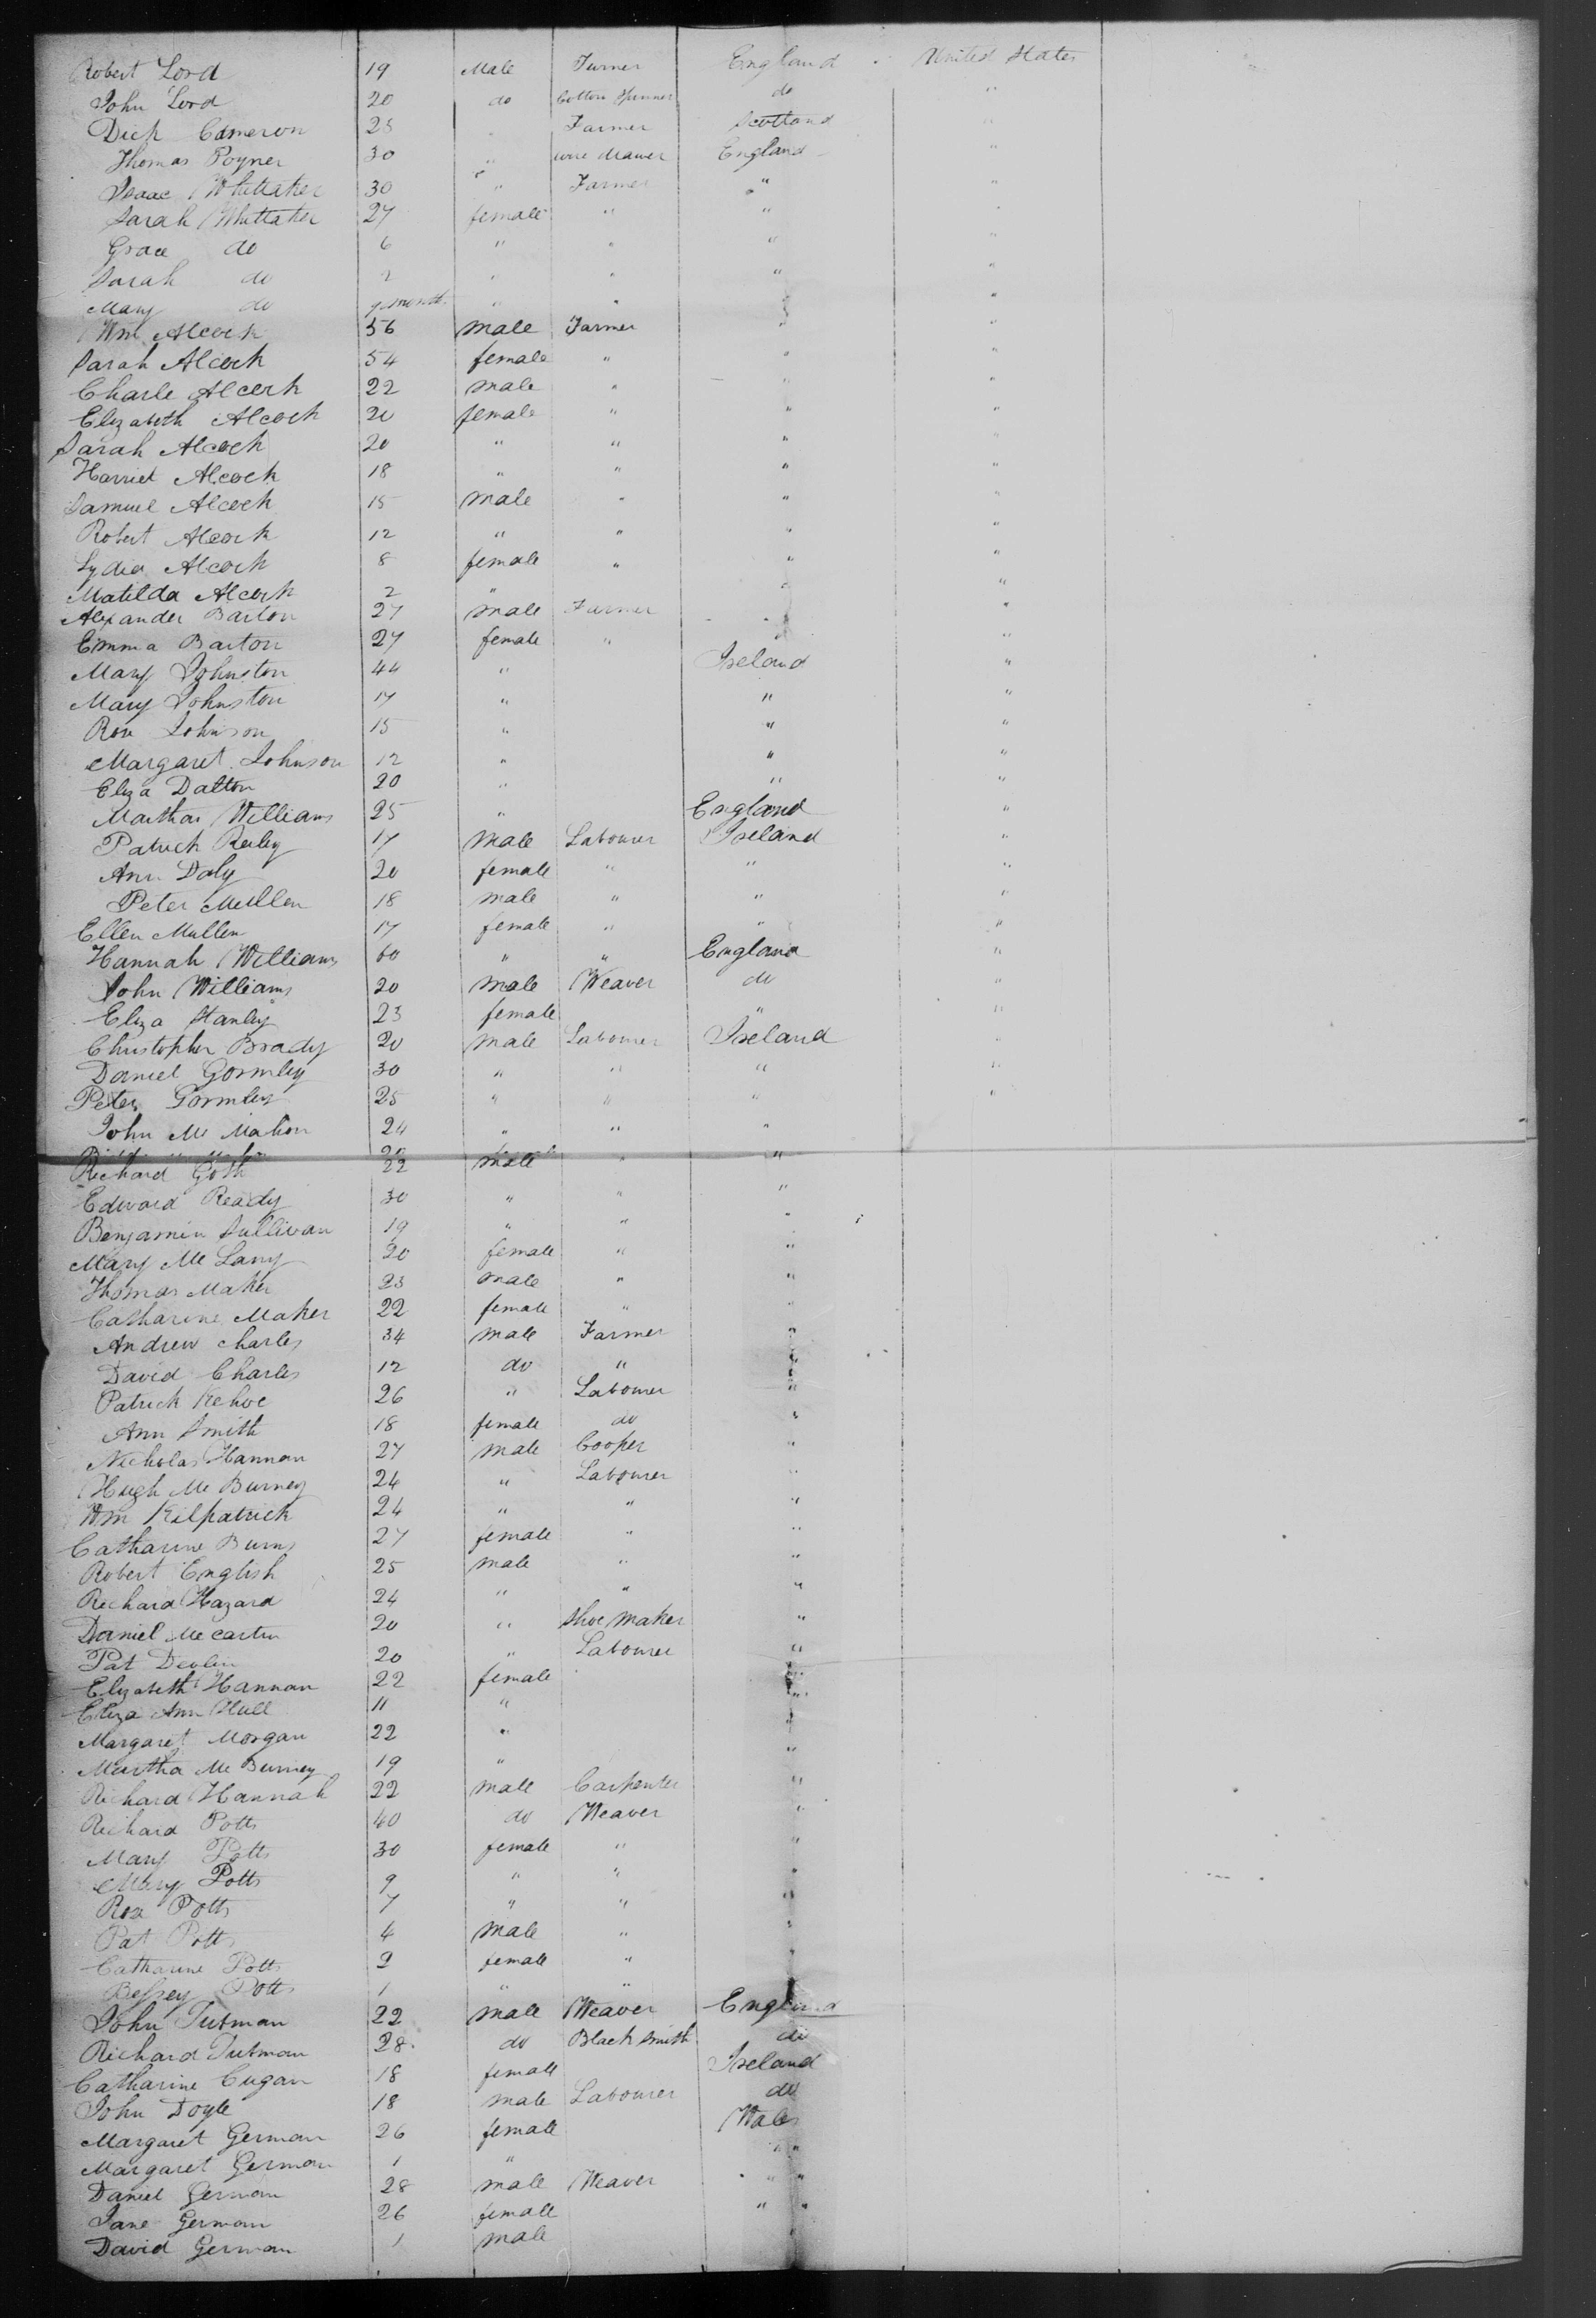 Robert Lord 19 Male Turner England United States
John Lord 20 do Cotton Spinner do "
Dick Cameron 25 Farmer Scotland "
Thomas Poyner 30 " wire drawer England "
Isaac Whittaker 30 " Farmer " "
Sarah Whittaker 27 female " " "
Grace do 6 " " " "
Sarah do 2 " " " "
Mary do 9 month " " " "
Wm Alcock 56 male Farmer " "
Sarah Alcock 54 female " " "
Charle Alcock 22 male " " "
Elizabeth Alcock 20 female " " "
Sarah Alcock 20 " " " "
Harriet Alcock 18 " " " "
Samuel Alcock 15 male " " "
Robert Alcock 12 " " " "
Lydia Alcock 8 female " " "
Matilda Alcock 2 " " "
Alexander Barton 27 male Farmer " "
Emma Barton 27 female " " "
Mary Johnston 44 " Ireland "
Mary Johnston 17 " " "
Rose Johnson 15 " " "
Margaret Johnson 12 " " "
Eliza Dalton 20 " " "
Martha Williams 25 " England "
Patrick Reiley 17 male Labourer Ireland "
Ann Daly 20 female " " "
Peter Mullen 18 male " " "
Ellen Mullen 17 female " " "
Hannah Williams 60 " " England "
John Williams 20 male Weaver do "
Eliza Stanley 23 female " "
Christopher Brady 20 male Labourer Ireland "
Daniel Gormley 30 " " " "
Peter Gormley 25 " " " "
John Mc Mahon 24 " " "
20
Richard Goth 22 male " "
Edward Ready 30 " " "
Benjamin Sullivan 19 " " "
Mary Mc Lany 20 female " "
Thomas Maker 23 male " "
Catharine Maker 22 female " "
Andrew Charles 34 male Farmer "
David Charles 12 do " "
Patrick Kehoe 26 " Labourer "
Ann Smith 18 female do "
Nicholas Hannan 27 male Cooper "
Hugh Mc Burney 24 " Labourer "
Wm Kilpatrick 24 " " "
Catharine Burns 27 female " "
Robert English 25 male " "
Richard Hazard 24 " " "
Daniel Mc cartin 20 " Shoe maker "
Pat Devlin 20 " Labourer "
Elizabeth Hannan 22 female "
Eliza Ann Hull 11 " "
Margaret Morgan 22 " "
Martha Mc Burney 19 " "
Richard Hannah 22 male Carpenter "
Richard Potts 40 do Weaver "
Mary Potts 30 female " "
Mary Potts 9 " " "
Rose Potts 7 " " "
Pat Potts 4 male " "
Catharine Potts 2 female " "
Bessey Potts 1 " "
John Tutman 22 male Weaver England
Richard Tutman 28 do Black smith do
Catharine Cugan 18 female Ireland
John Doyle 18 male Labourer do
Margaret German 26 female Wales
Margaret German 1 " "
Daniel German 28 male Weaver "
Jane German 26 female "
David German 1 male "